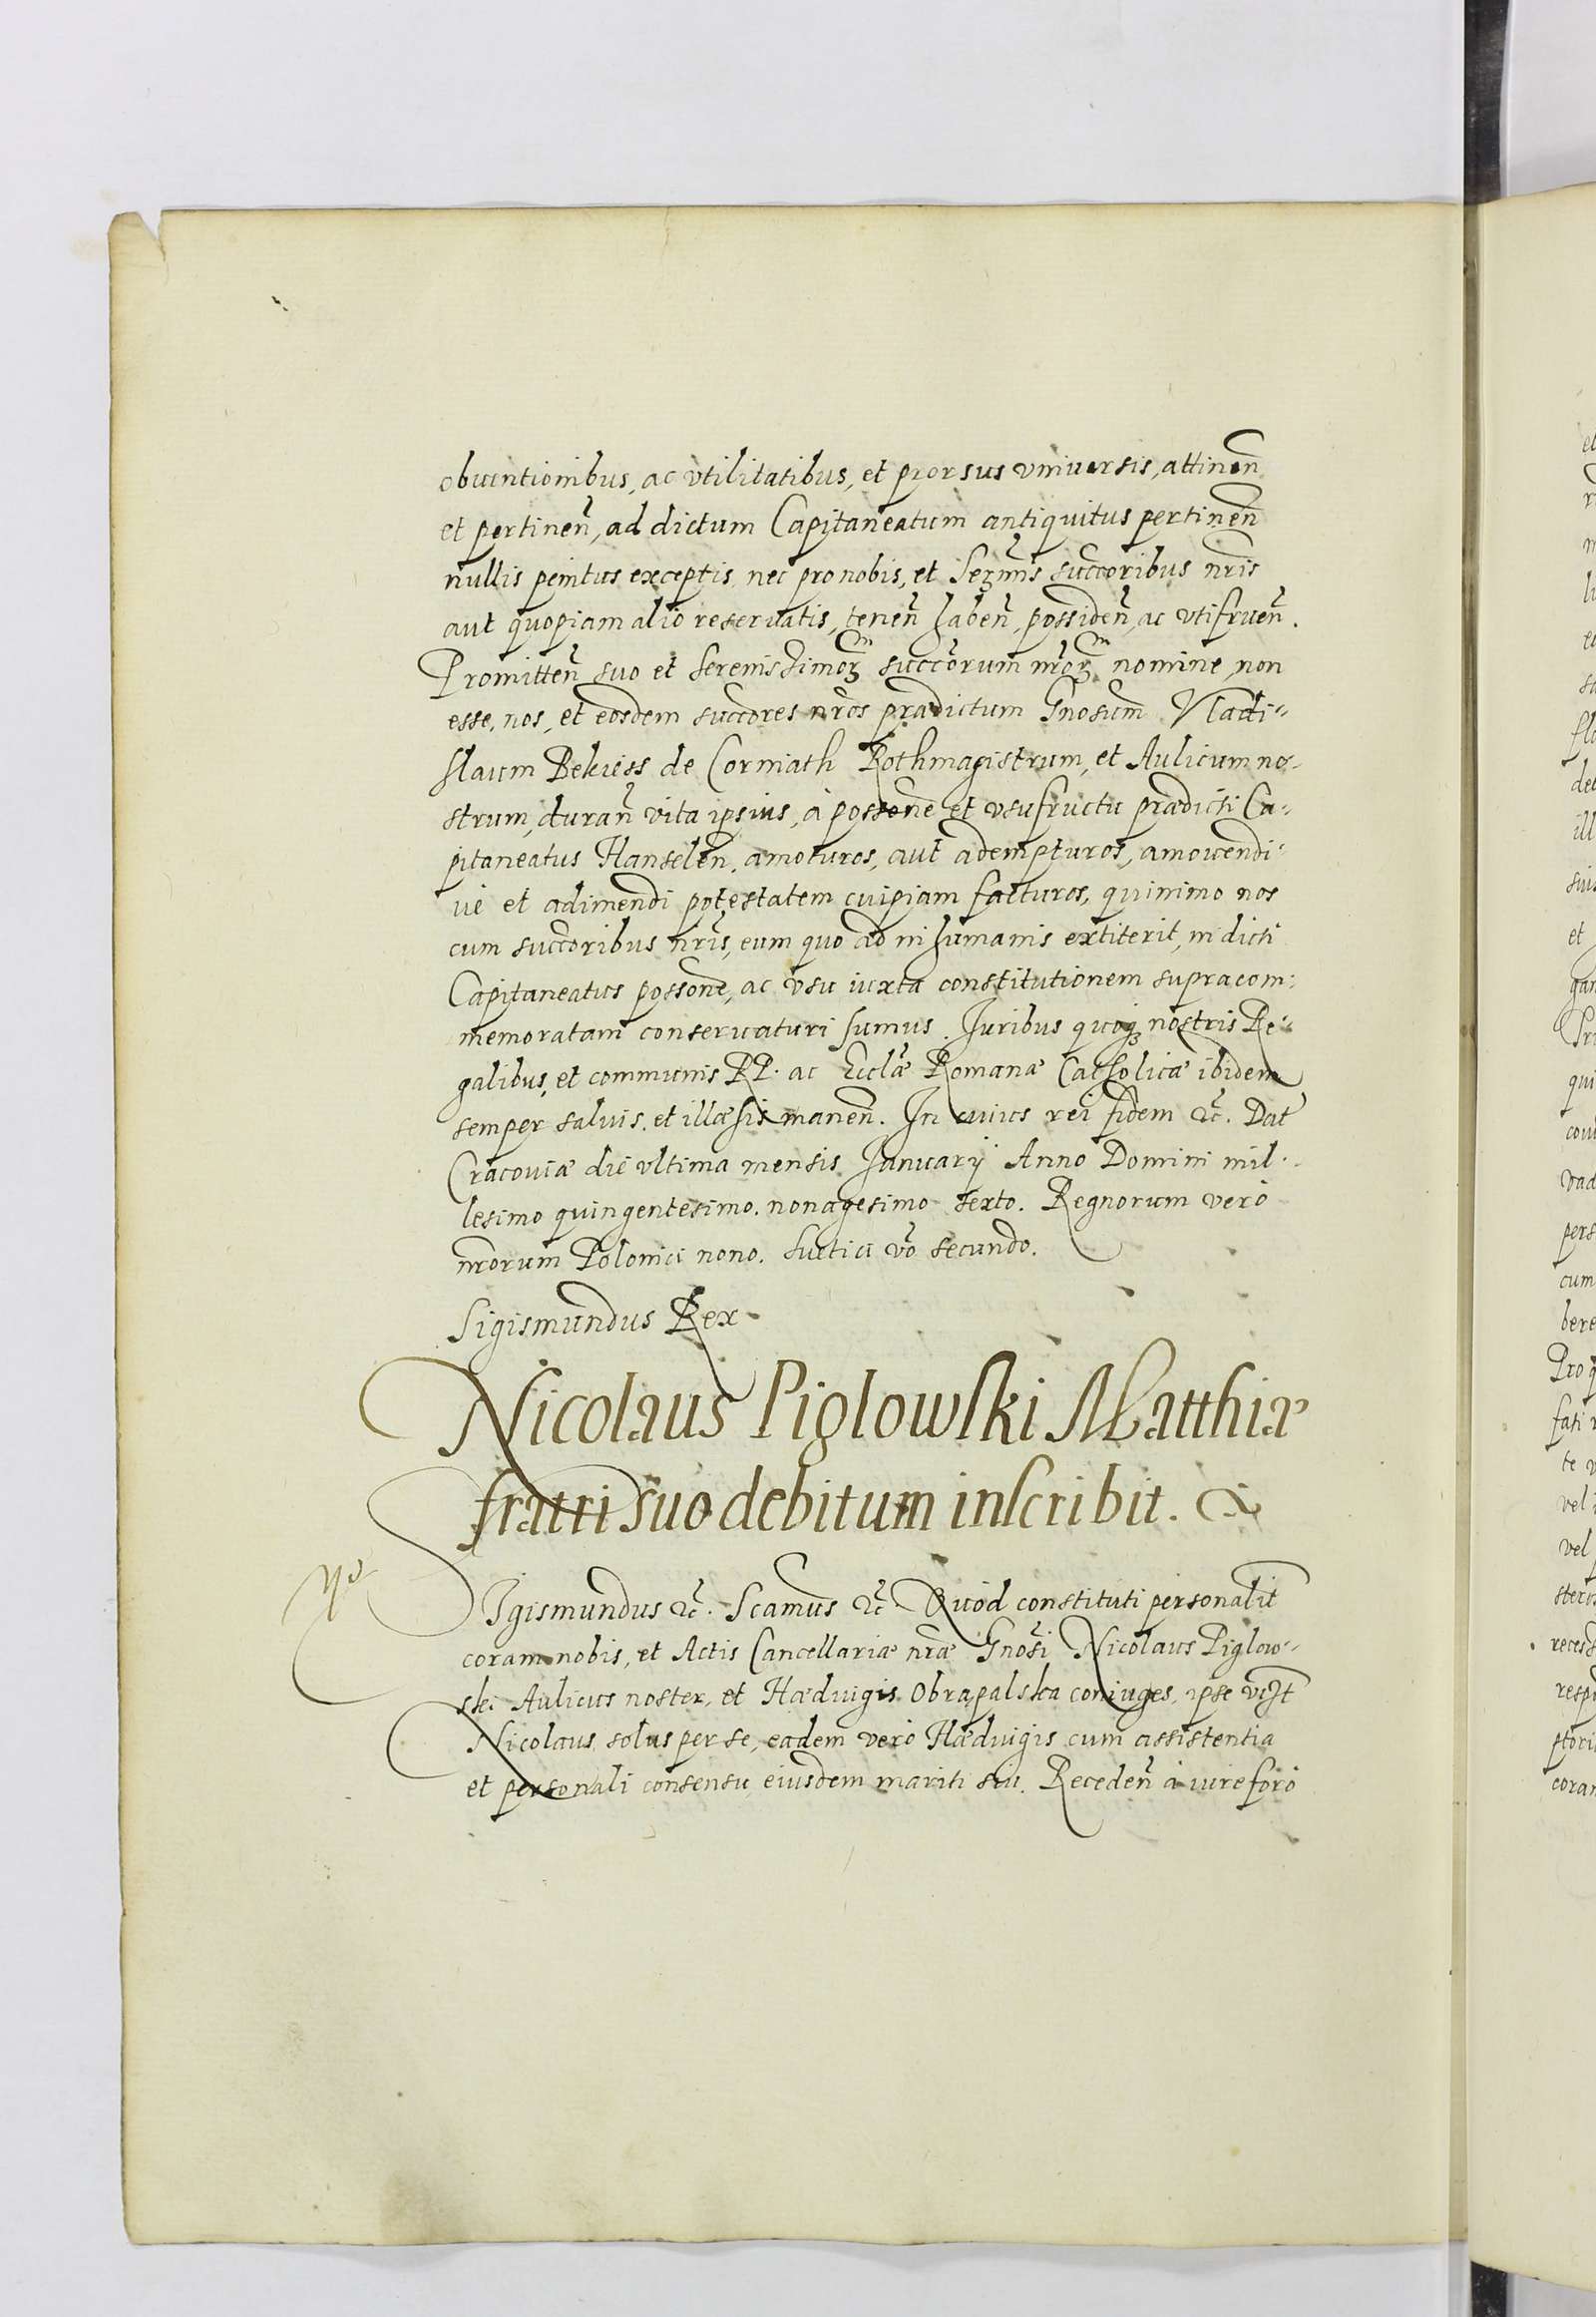 obuentionibus, ac vtilitatibus, et prorsus vniuersis, attinen̄
et pertinen̄, ad dictum Capitaneatum antiquitus pertinen̄
nullis penitus exceptis, nec pro nobis, et Serm̄is succoribus nr̄is
aut quopiam alio reseruatis, tenen̄ haben̄, possiden̄, ac vtifruen̄.
Promitten̄ suo et Serenissimoꝝ succorum nr̄oꝝ nomine, non
esse, nos, et eosdem succores nr̄os prædictum Gnosum Vladi-
slaum Bekiess de Corniath Rothmagistrum, et Aulicum no-
strum, duran̄ vita ipsius, à possone et vsufructu prædicti Ca-
pitaneatus Hanselen. amoturos, aut adempturos, amouendi-
ue et adimendi potestatem cuipiam facturos, quinimo nos
cum succoribus nr̄is, eum quo ad in humanis extiterit, in dicti
Capitaneatus possone, ac vsu iuxta constitutionem supracom-
memoratam conseruaturi sumus. Iuribus quoqꝫ nostris Re-
galibus, et communis RP. ac Eccl̄æ Romanæ Catholicæ ibidem
semper saluis, et illæsis manen̄. In cuius rei fidem ꝛc̄. Dat̄
Cracouiæ die vltima mensis Ianuarij Anno Domini mil-
lesimo quingentesimo. nonagesimo sexto. Regnorum verò
nr̄orum Poloniæ nono. Suetiæ vō secundo.
Sigismundus Rex
Nicolaus Piglowski Matthiæ
fratri suo debitum inscribit. &
SIgismundus ꝛc̄. Scamus ꝛc̄ Quòd constituti personalit̄
coram nobis, et Actis Cancellariæ nr̄æ Gnosi Nicolaus Piglow-
ski Aulicus noster, et Hæduigis Obrapalska coniuges, ipse
Nicolaus solus per se, eadem verò Hæduigis cum assistentia
et personali consensu eiusdem mariti sui. Receden̄ à iure foro